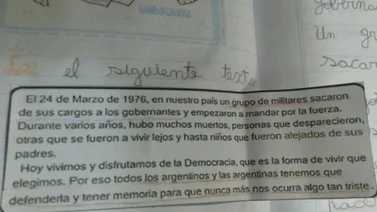 gobierno
Un gr
sacar
el siguiente text
El 24 de Marzo de 1976, en nuestro país un grupo de militares sacaron
de sus cargos a los gobernantes y empezaron a mandar por la fuerza.
Durante varios años, hubo muchos muertos, personas que desparecieron,
otras que se fueron a vivir lejos y hasta niños que fueron alejados de sus
padres.
Hoy vivimos y disfrutamos de la Democracia, que es la forma de vivir que
elegimos. Por eso todos los argentinos y las argentinas tenemos que
defenderla y tener memoria para que nunca más nos ocurra algo tan triste.